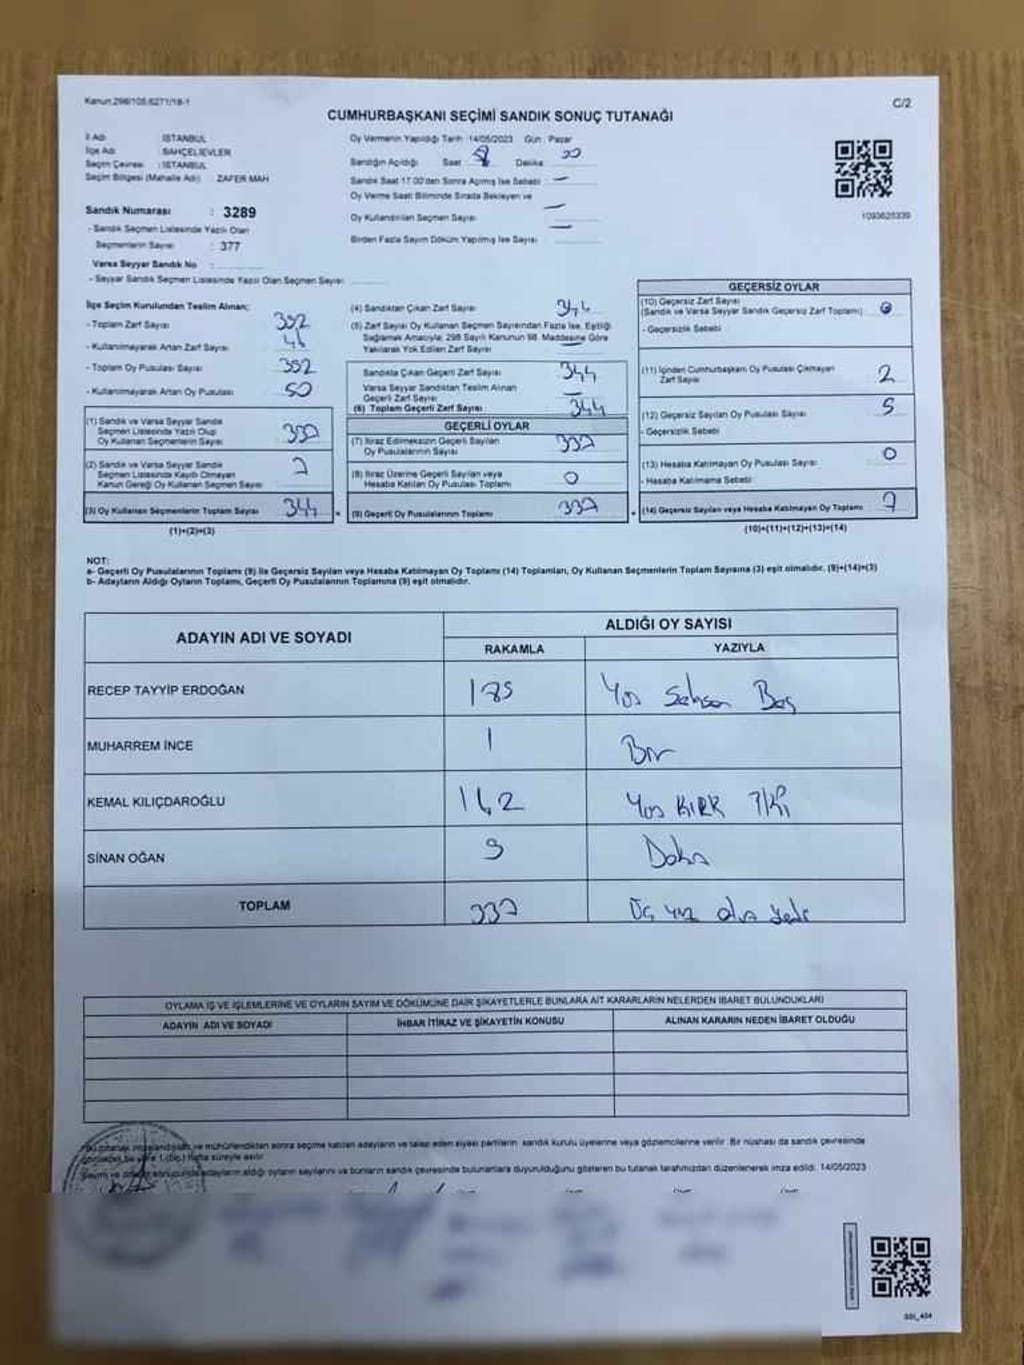 Kanun:298/105,6271/18-1
C/2
CUMHURBAŞKANI SEÇİMİ SANDIK SONUÇ TUTANAĞI
İl Adı : İSTANBUL
İlçe Adı : BAHÇELİEVLER
Seçim Çevresi : İSTANBUL
Seçim Bölgesi (Mahalle Adı) : ZAFER MAH
Sandık Numarası : 3289
- Sandık Seçmen Listesinde Yazılı Olan
Seçmenlerin Sayısı : 377
Varsa Seyyar Sandık No :
- Seyyar Sandık Seçmen Listesinde Yazılı Olan Seçmen Sayısı
Oy Vermenin Yapıldığı Tarih :14/05/2023 Gün : Pazar
Sandığın Açıldığı Saat Dakika
Sandık Saat 17.00'den Sonra Açılmış İse Sebebi —
Oy Verme Saati Bitiminde Sırada Bekleyen ve
Oy Kullandırılan Seçmen Sayısı —
Birden Fazla Sayım Döküm Yapılmış İse Sayısı —
1093625339
İlçe Seçim Kurulundan Teslim Alınan;
- Toplam Zarf Sayısı 392
- Kullanılmayarak Artan Zarf Sayısı
- Toplam Oy Pusulası Sayısı 392
- Kullanılmayarak Artan Oy Pusulası 50
(1) Sandık ve Varsa Seyyar Sandık
Seçmen Listesinde Yazılı Olup
Oy Kullanan Seçmenlerin Sayısı 337
(2) Sandık ve Varsa Seyyar Sandık
Seçmen Listesinde Kayıtlı Olmayan
Kanun Gereği Oy Kullanan Seçmen Sayısı 7
(3) Oy Kullanan Seçmenlerin Toplam Sayısı 344
(1)+(2)=(3)
(4) Sandıktan Çıkan Zarf Sayısı 344
(5) Zarf Sayısı Oy Kullanan Seçmen Sayısından Fazla İse, Eşitliği
Sağlamak Amacıyla; 298 Sayılı Kanunun 98. Maddesine Göre
Yakılarak Yok Edilen Zarf Sayısı —
Sandıkta Çıkan Geçerli Zarf Sayısı 344
Varsa Seyyar Sandıktan Teslim Alınan
Geçerli Zarf Sayısı —
(6) Toplam Geçerli Zarf Sayısı 344
GEÇERLİ OYLAR
(7) İtiraz Edilmeksizin Geçerli Sayılan
Oy Pusulalarının Sayısı 337
(8) İtiraz Üzerine Geçerli Sayılan veya
Hesaba Katılan Oy Pusulası Toplamı 0
(9) Geçerli Oy Pusulalarının Toplamı 337
GEÇERSİZ OYLAR
(10) Geçersiz Zarf Sayısı
(Sandık ve Varsa Seyyar Sandık Geçersiz Zarf Toplamı) 0
- Geçersizlik Sebebi
(11) İçinden Cumhurbaşkanı Oy Pusulası Çıkmayan
Zarf Sayısı 2
(12) Geçersiz Sayılan Oy Pusulası Sayısı 5
- Geçersizlik Sebebi
(13) Hesaba Katılmayan Oy Pusulası Sayısı 0
- Hesaba Katılmama Sebebi
(14) Geçersiz Sayılan veya Hesaba Katılmayan Oy Toplamı 7
(10)+(11)+(12)+(13)=(14)
NOT:
a- Geçerli Oy Pusulalarının Toplamı (9) ile Geçersiz Sayılan veya Hesaba Katılmayan Oy Toplamı (14) Toplamları, Oy Kullanan Seçmenlerin Toplam Sayısına (3) eşit olmalıdır. (9)+(14)=(3)
b- Adayların Aldığı Oyların Toplamı, Geçerli Oy Pusulalarının Toplamına (9) eşit olmalıdır.
ADAYIN ADI VE SOYADI
ALDIĞI OY SAYISI
RAKAMLA YAZIYLA
RECEP TAYYİP ERDOĞAN 185 Yüz Seksen Beş
MUHARREM İNCE 1 Bir
KEMAL KILIÇDAROĞLU 142 Yüz KIRK İKİ
SİNAN OĞAN 9 Dokuz
TOPLAM 337 Üç yüz otuz yedi
OYLAMA İŞ VE İŞLEMLERİNE VE OYLARIN SAYIM VE DÖKÜMÜNE DAİR ŞİKAYETLERLE BUNLARA AİT KARARLARIN NELERDEN İBARET BULUNDUKLARI
ADAYIN ADI VE SOYADI İHBAR İTİRAZ VE ŞİKAYETİN KONUSU ALINAN KARARIN NEDEN İBARET OLDUĞU
ve mühürlendikten sonra seçime katılan adayların ve talep eden siyasi partilerin sandık kurulu üyelerine veya gözlemcilerine verilir. Bir nüshası da sandık çevresinde
1 (bir) hafta süreyle asılır.
adayların aldığı oyların sayılarını ve bunların sandık çevresinde bulunanlara duyurulduğunu gösteren bu tutanak tarafımızdan düzenlenerek imza edildi. 14/05/2023